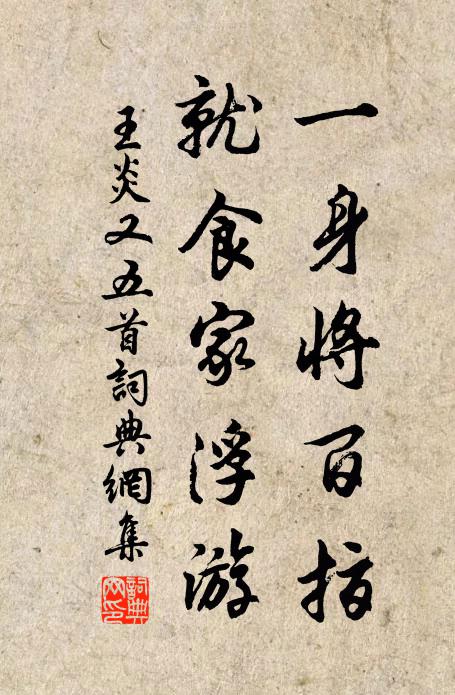 一身將百指
就食家浮游
王炎又五首詞典網集
詞典网印